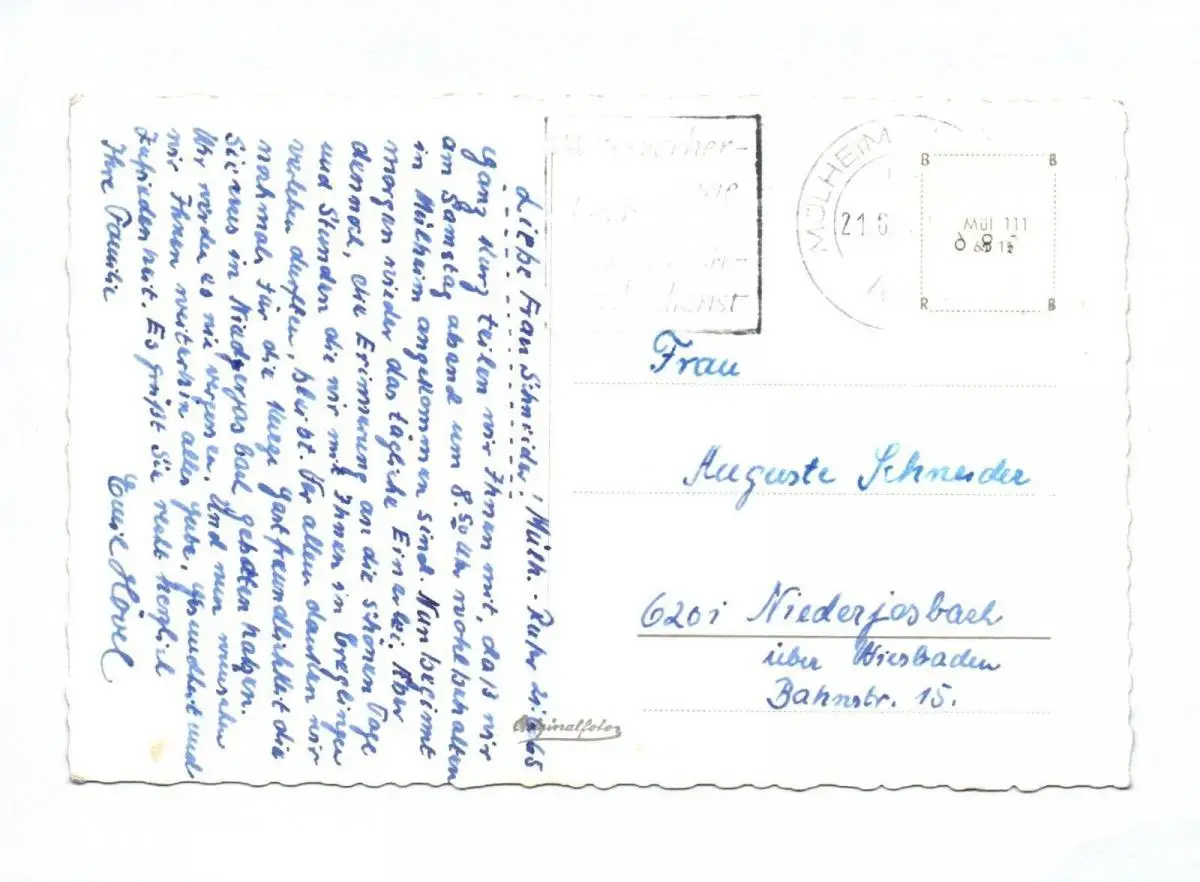 Liebe Frau Schneider! Mülh.-Ruhr 21. 65
Ganz kurz teilen wir Ihnen mit, daß wir
am Samstag abend um 8.50 Uhr wohlbehalten
in Mülheim angekommen sind. Nun beginnt
morgen wieder das tägliche Einerlei. Aber
dennoch, die Erinnerung an die schönen Tage
und Stunden die wir mit Ihnen in Creglingen
verleben durften, bleibt. Vor allem danken wir
nochmals für die Gastfreundlichkeit die
Sie uns in Niederjosbach geboten haben.
Wir werden es nie vergessen. Und nun wünschen
wir Ihnen weiterhin alles Gute, Gesundheit und
Zufriedenheit. Es grüßt Sie recht herzlich
Ihre Familie
Emil Hövel
Originalfoto
dienst
MÜLHEIM
21.6.
B B
Mül 111
R B
Frau
Auguste Schneider
6201 Niederjosbach
über Wiesbaden
Bahnstr. 15.